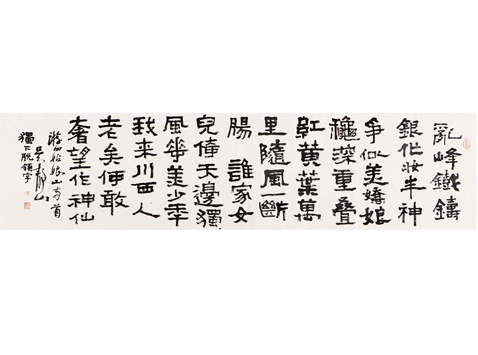 亂峰鐵鑄
銀化妝半神
爭似美嬌娘
龝深重叠
紅黄葉萬
里隨風一斷
腸 誰家女
兒倚天邊獨
風華美少年
我來川西人
老矣何敢
奢望作神仙
游四姑娘山两首
吴静山
獨下脱領字